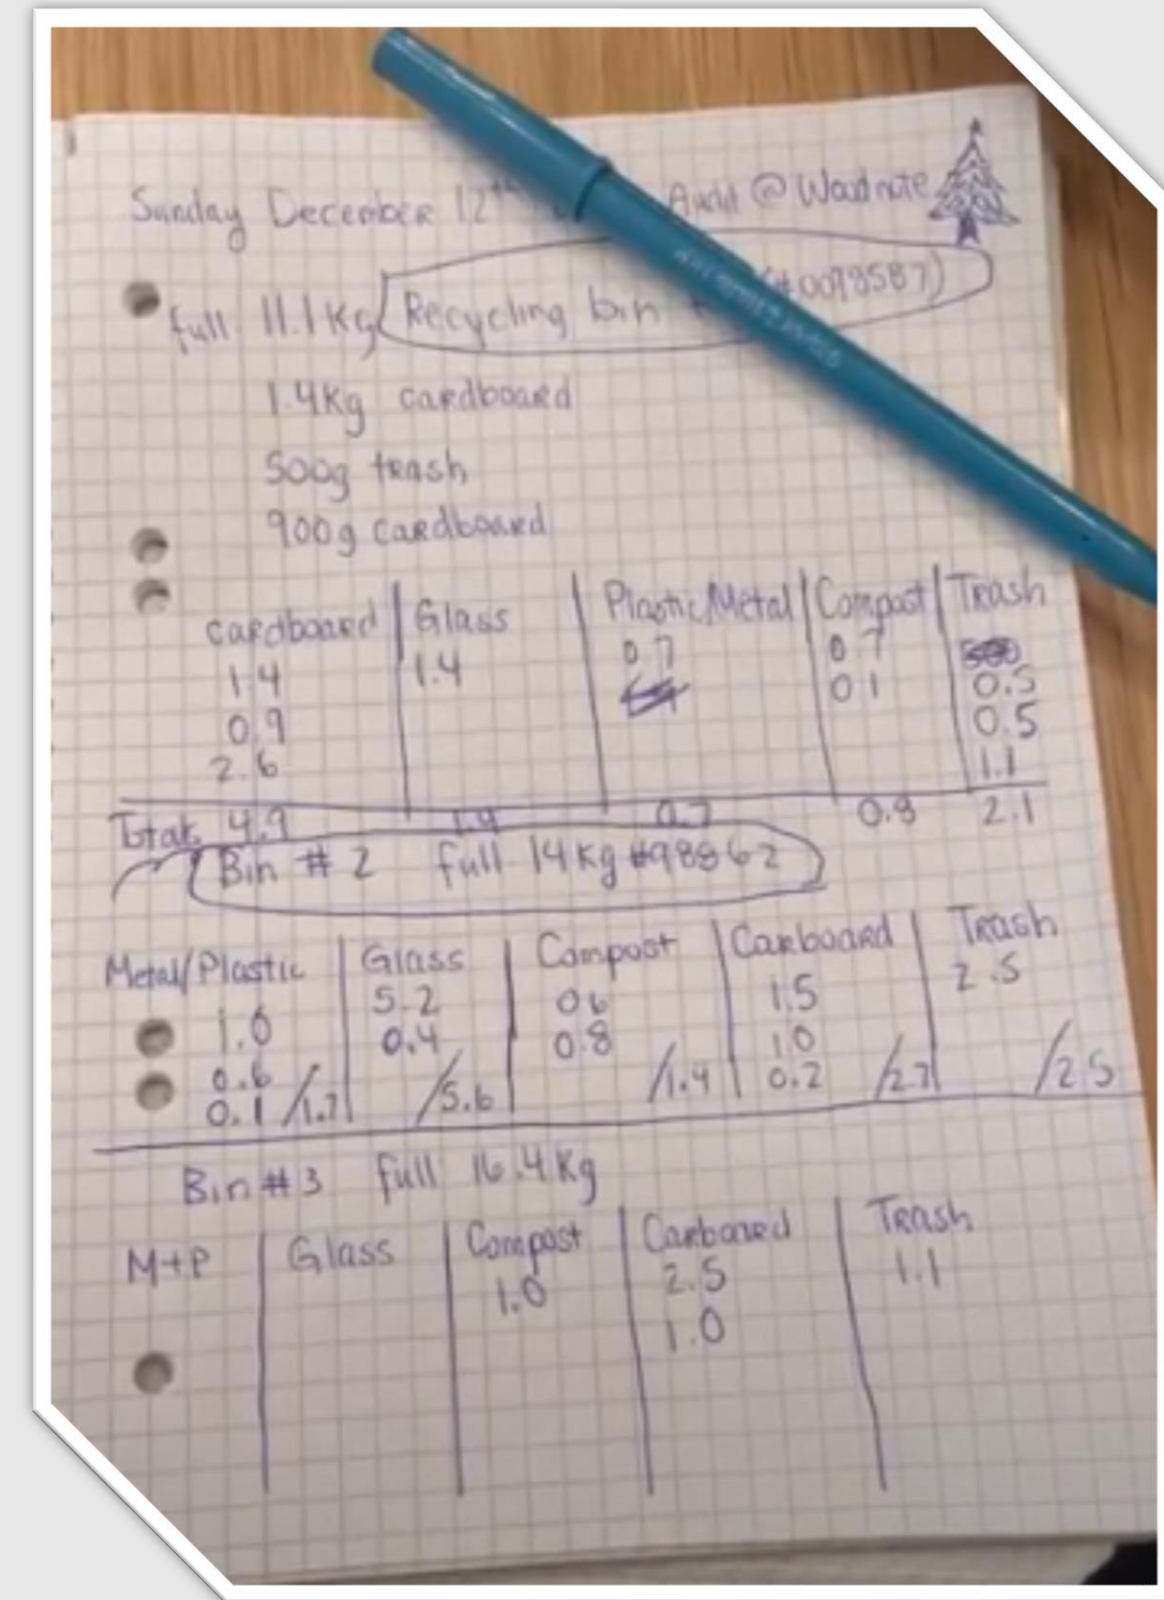 Sunday December 12th Audit @ Woodnote
full 11.1Kg Recycling bin (#0098587)
1.4Kg cardboard
500g trash
900g cardboard
cardboard Glass Plastic/Metal Compost Trash
1.4 1.4 0.7 0.7
0.9 0.1 0.5
2.6 0.5
1.1
Total 4.9 1.4 0.7 0.8 2.1
Bin # 2 full 14Kg #98862
Metal/Plastic Glass Compost Carboard Trash
1.0 5.2 06 1.5 2.5
0.6 0.4 0.8 1.0
0.1 /1.7 /5.6 /1.4 0.2 /2.7 /2.5
Bin #3 full 16.4Kg
M+P Glass Compost Carboard Trash
1.0 2.5 1.1
1.0